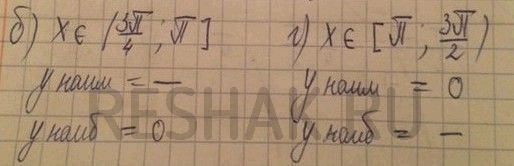 б) x ∈ (3π/4; π]
y наим = —
y наиб = 0
г) x ∈ [π; 3π/2)
y наим = 0
y наиб = —
RESHAK.RU